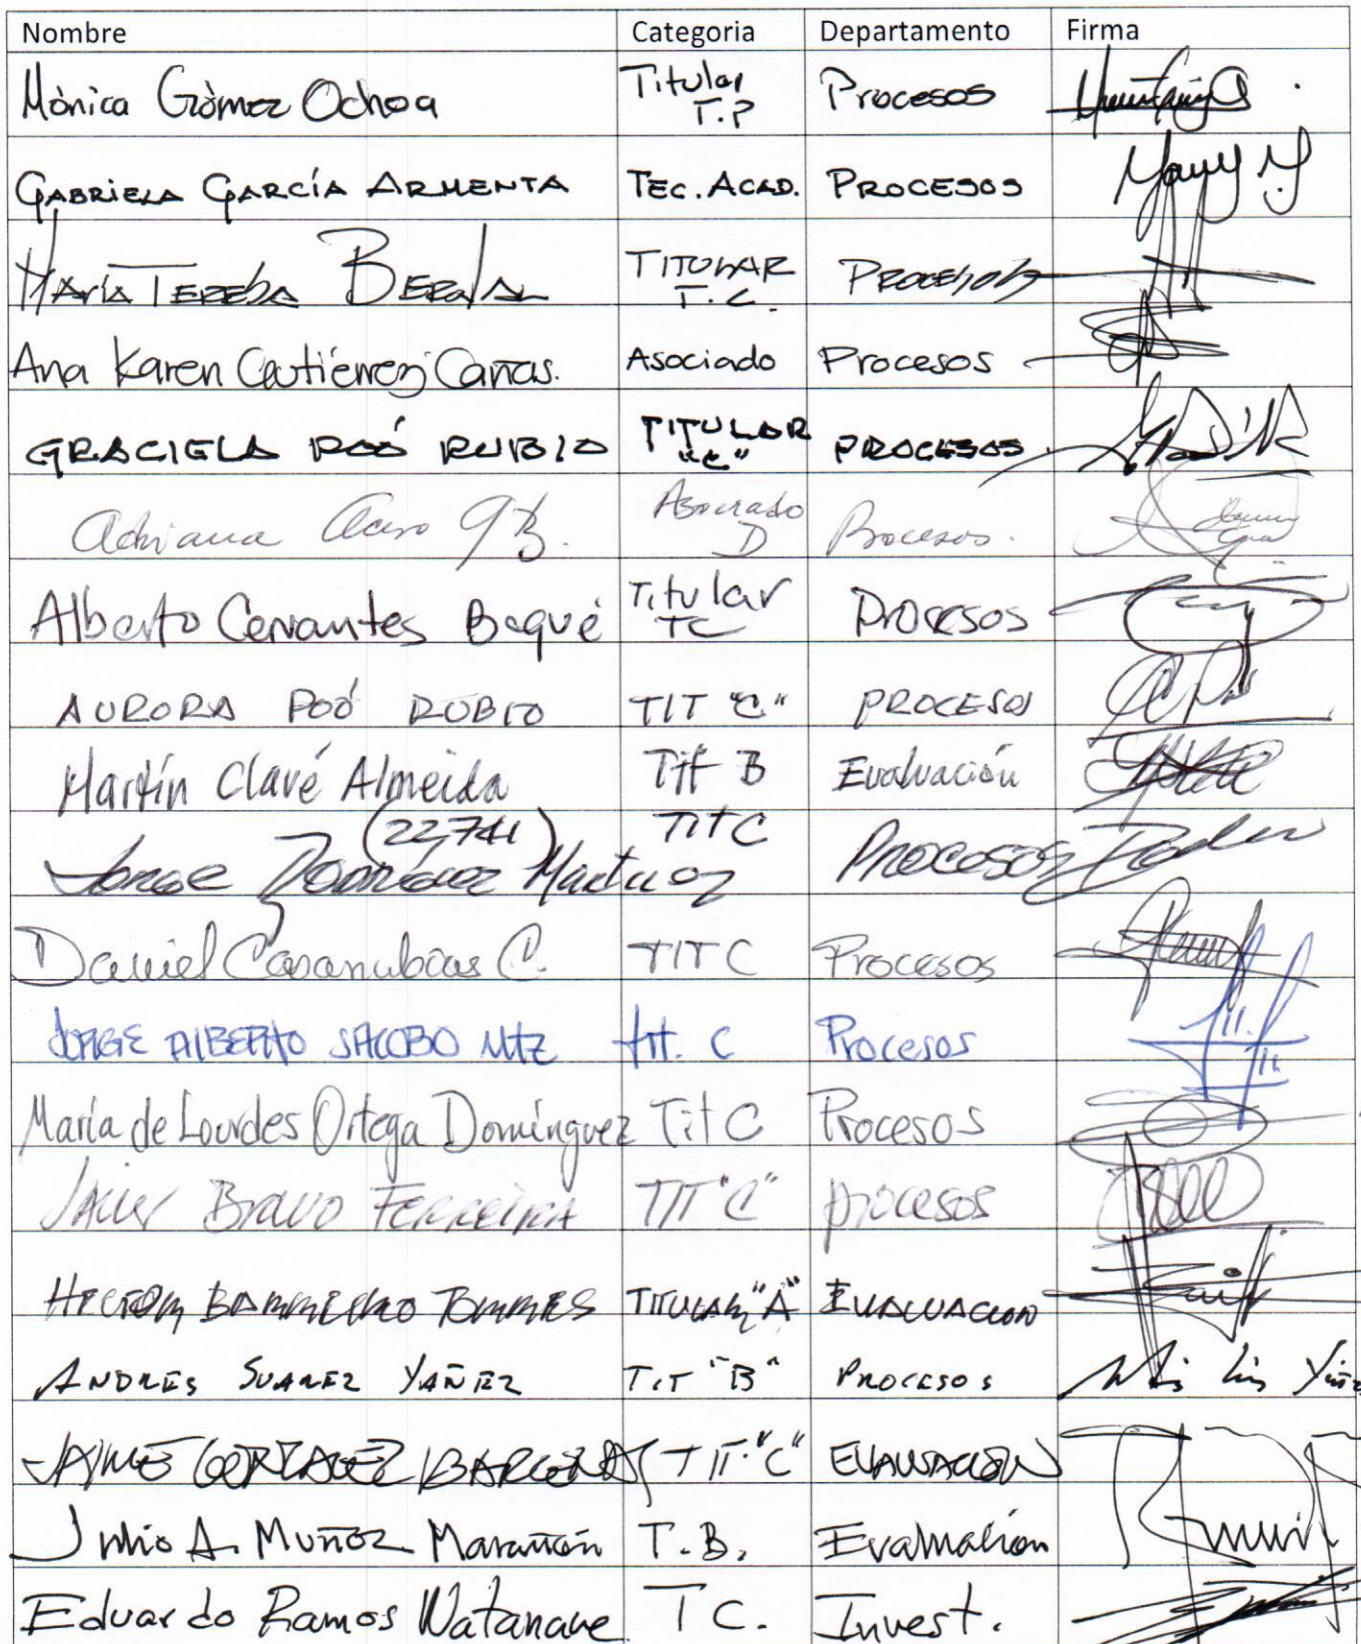 Nombre Categoria Departamento Firma
Mònica Gòmez Ochoa Titular T.P Procesos
GABRIELA GARCÍA ARMENTA TEC. ACAD. PROCESOS
MARÍA TERESA BERNAL TITULAR T.C. PROCESOS
Ana Karen Gutiérrez Cañas. Asociado Procesos
GRACIELA POÓ RUBIO TITULAR "C" PROCESOS
Adriana Acero G B. Asociado D Procesos.
Alberto Cervantes Baqué Titular TC Procesos
AURORA POÓ RUBIO TIT "C" PROCESOS
Martín Clavé Almeida Tit B Evaluación
Jorge Rodríguez Martínez (22,741) TIT C Procesos
Daniel Casarrubias C. TIT C Procesos
JORGE ALBERTO JACOBO Mtz tit. C Procesos
María de Lourdes Ortega Domínguez Tit C Procesos
Javier Bravo Ferreira TIT "C" procesos
HECTOR BARREIRO TORRES TITULAR "A" EVALUACION
ANDRES SUAREZ YAÑEZ TIT "B" PROCESOS
JAIME GONZALEZ BARCENAS TIT. "C" EVALUACION
Julio A. Muñoz Marañón T.B. Evaluación
Eduardo Ramos Watanave TC. Invest.